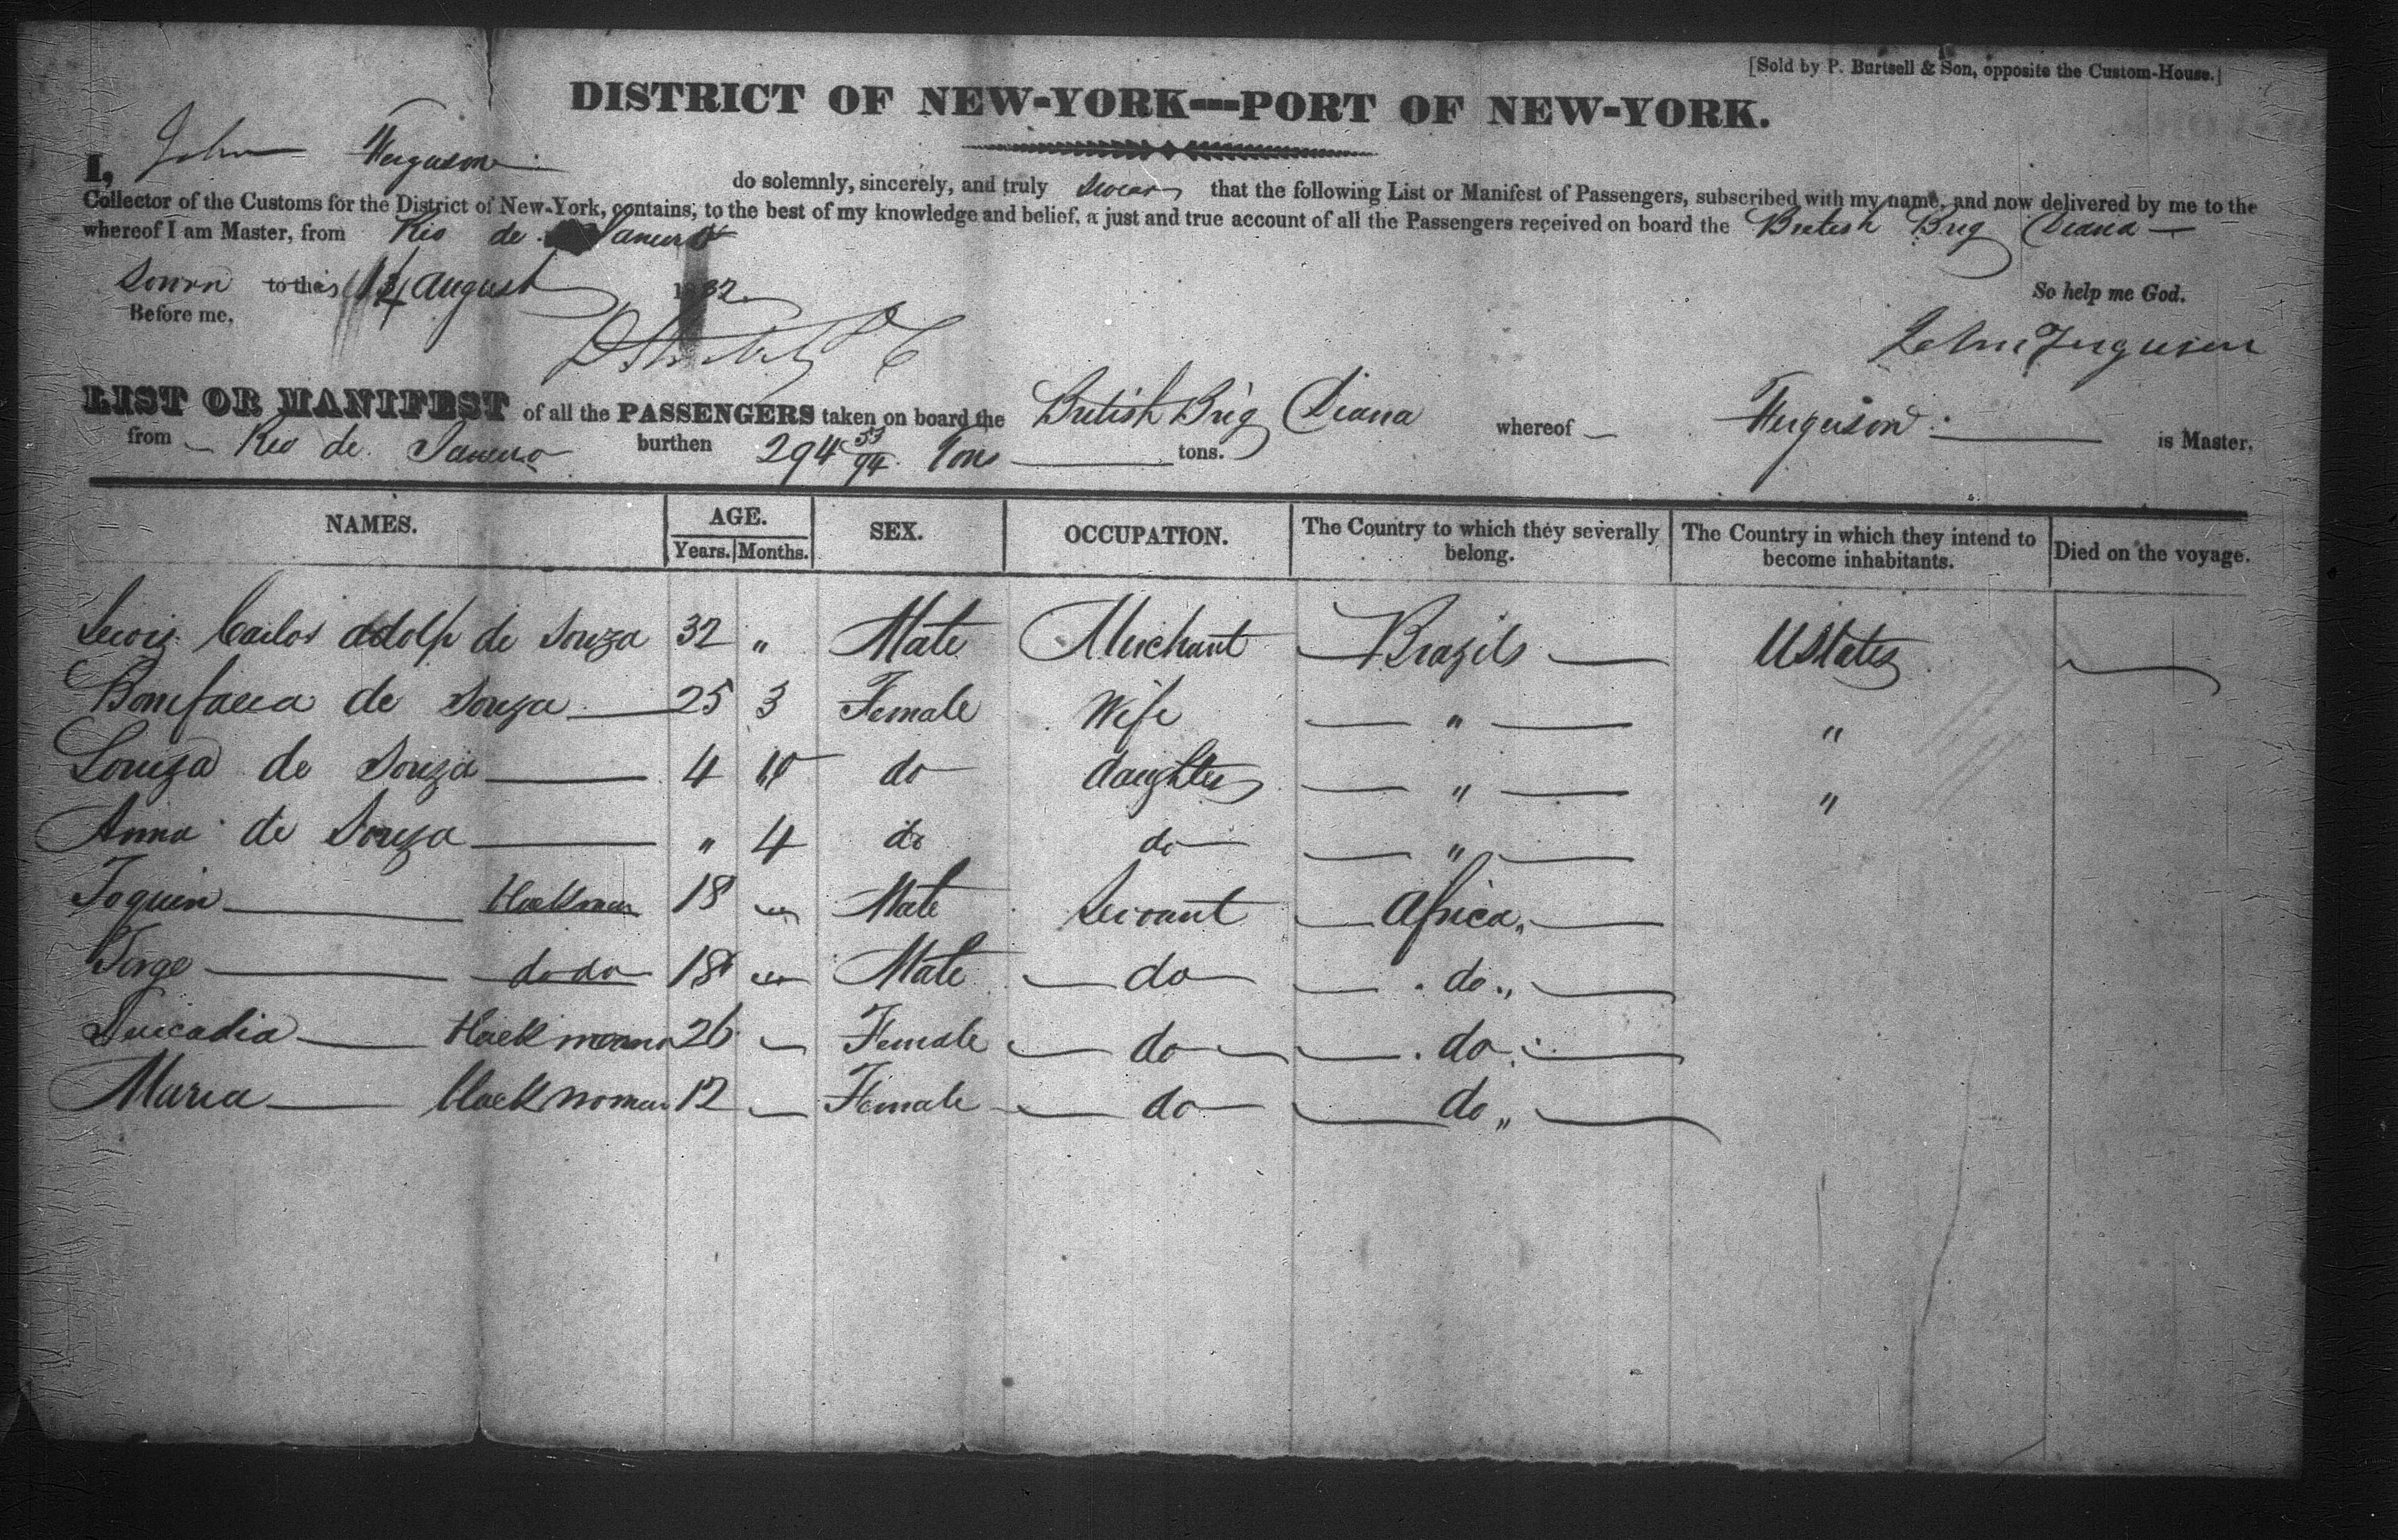 [Sold by P. Burtsell & Son, opposite the Custom-House.]
DISTRICT OF NEW-YORK—PORT OF NEW-YORK.
I, John Ferguson do solemnly, sincerely, and truly swear that the following List or Manifest of Passengers, subscribed with my name, and now delivered by me to the
Collector of the Customs for the District of New-York, contains, to the best of my knowledge and belief, a just and true account of all the Passengers received on board the British Brig Diana
whereof I am Master, from Rio de Janeiro
Sworn to this 14 August 1832
So help me God.
Before me,
John Ferguson
LIST OR MANIFEST of all the PASSENGERS taken on board the British Brig Diana whereof Ferguson is Master,
from Rio de Janeiro burthen 294 53/94 Tons tons.
NAMES. AGE. SEX. OCCUPATION. The Country to which they severally belong. The Country in which they intend to become inhabitants. Died on the voyage.
Years. Months.
Lewis Carlos adolph de Souza 32 " Male Merchant Brazils UStates
Bonifacia de Souza 25 3 Female Wife " "
Louiza de Souza 4 10 do daughter " "
Anna de Souza " 4 do do "
Joquin blackman 18 " Male Servant Africa
Jorge do do 18 " Male do do
Black woman 26 Female do do
Maria black woman 12 Female do do "